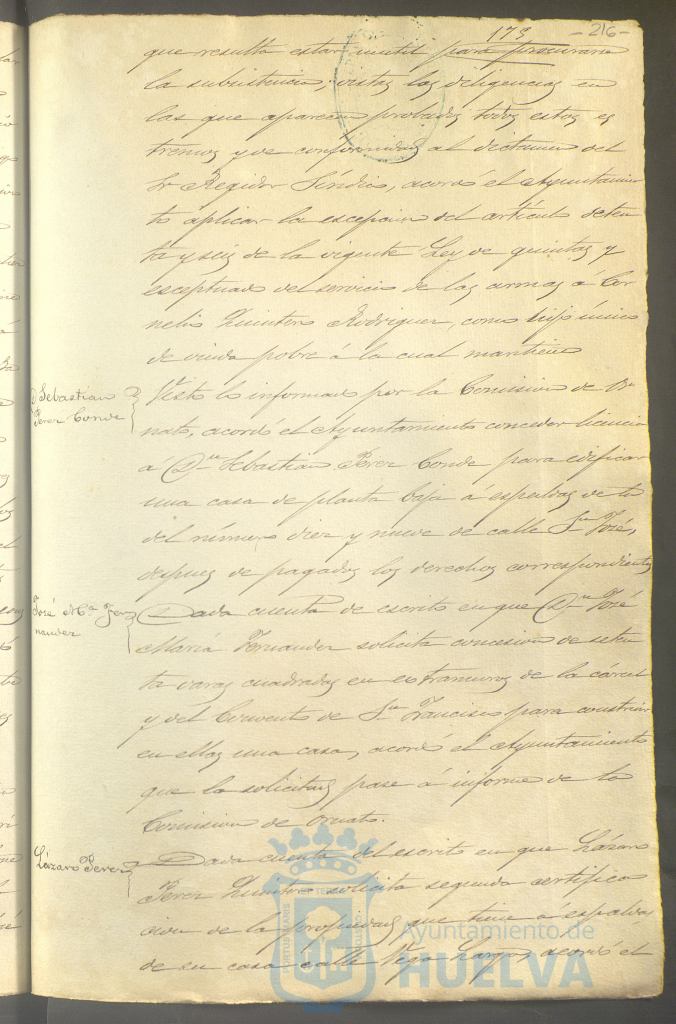 173
-216-
que resulta estar inutil para procurarse
la subsistencia; vistas las diligencias en
las que aparecen probados todos estos es
tremos y de conformidad al dictamen del
Sr Regidor Síndico, acordó el Ayuntamien
to aplicar la escepcion del artículo seten
ta y seis de la vigente Ley de quintas y
esceptuado del servicio de las armas á Cor
nelio Quintero Rodriguez, como hijo único
de viuda pobre á la cual mantiene
D Sebastian
Perez Conde
Visto lo informado por la Comision de Or
nato, acordó el Ayuntamiento conceder licencia
á Dn Sebastian Perez Conde para edificar
una casa de planta baja á espaldas de la
del número diez y nueve de calle Sn José,
despues de pagados los derechos correspondientes
José Mª Fer
nandez
Dada cuenta de escrito en que Dn José
María Fernandez solicita concesion de seten
ta varas cuadradas en extramuros de la cárcel
y del Convento de Sn Francisco para construir
en ellas una casa, acordó el Ayuntamiento
que la solicitud pase á informe de la
Comision de Ornato.
Lázaro Perez
Dada cuenta del escrito en que Lázaro
Perez Quintero solicita segunda certifica
cion de la propiedad que tiene á espaldas
de su casa calle Vega Larga, acordó el
Ayuntamiento de
HUELVA